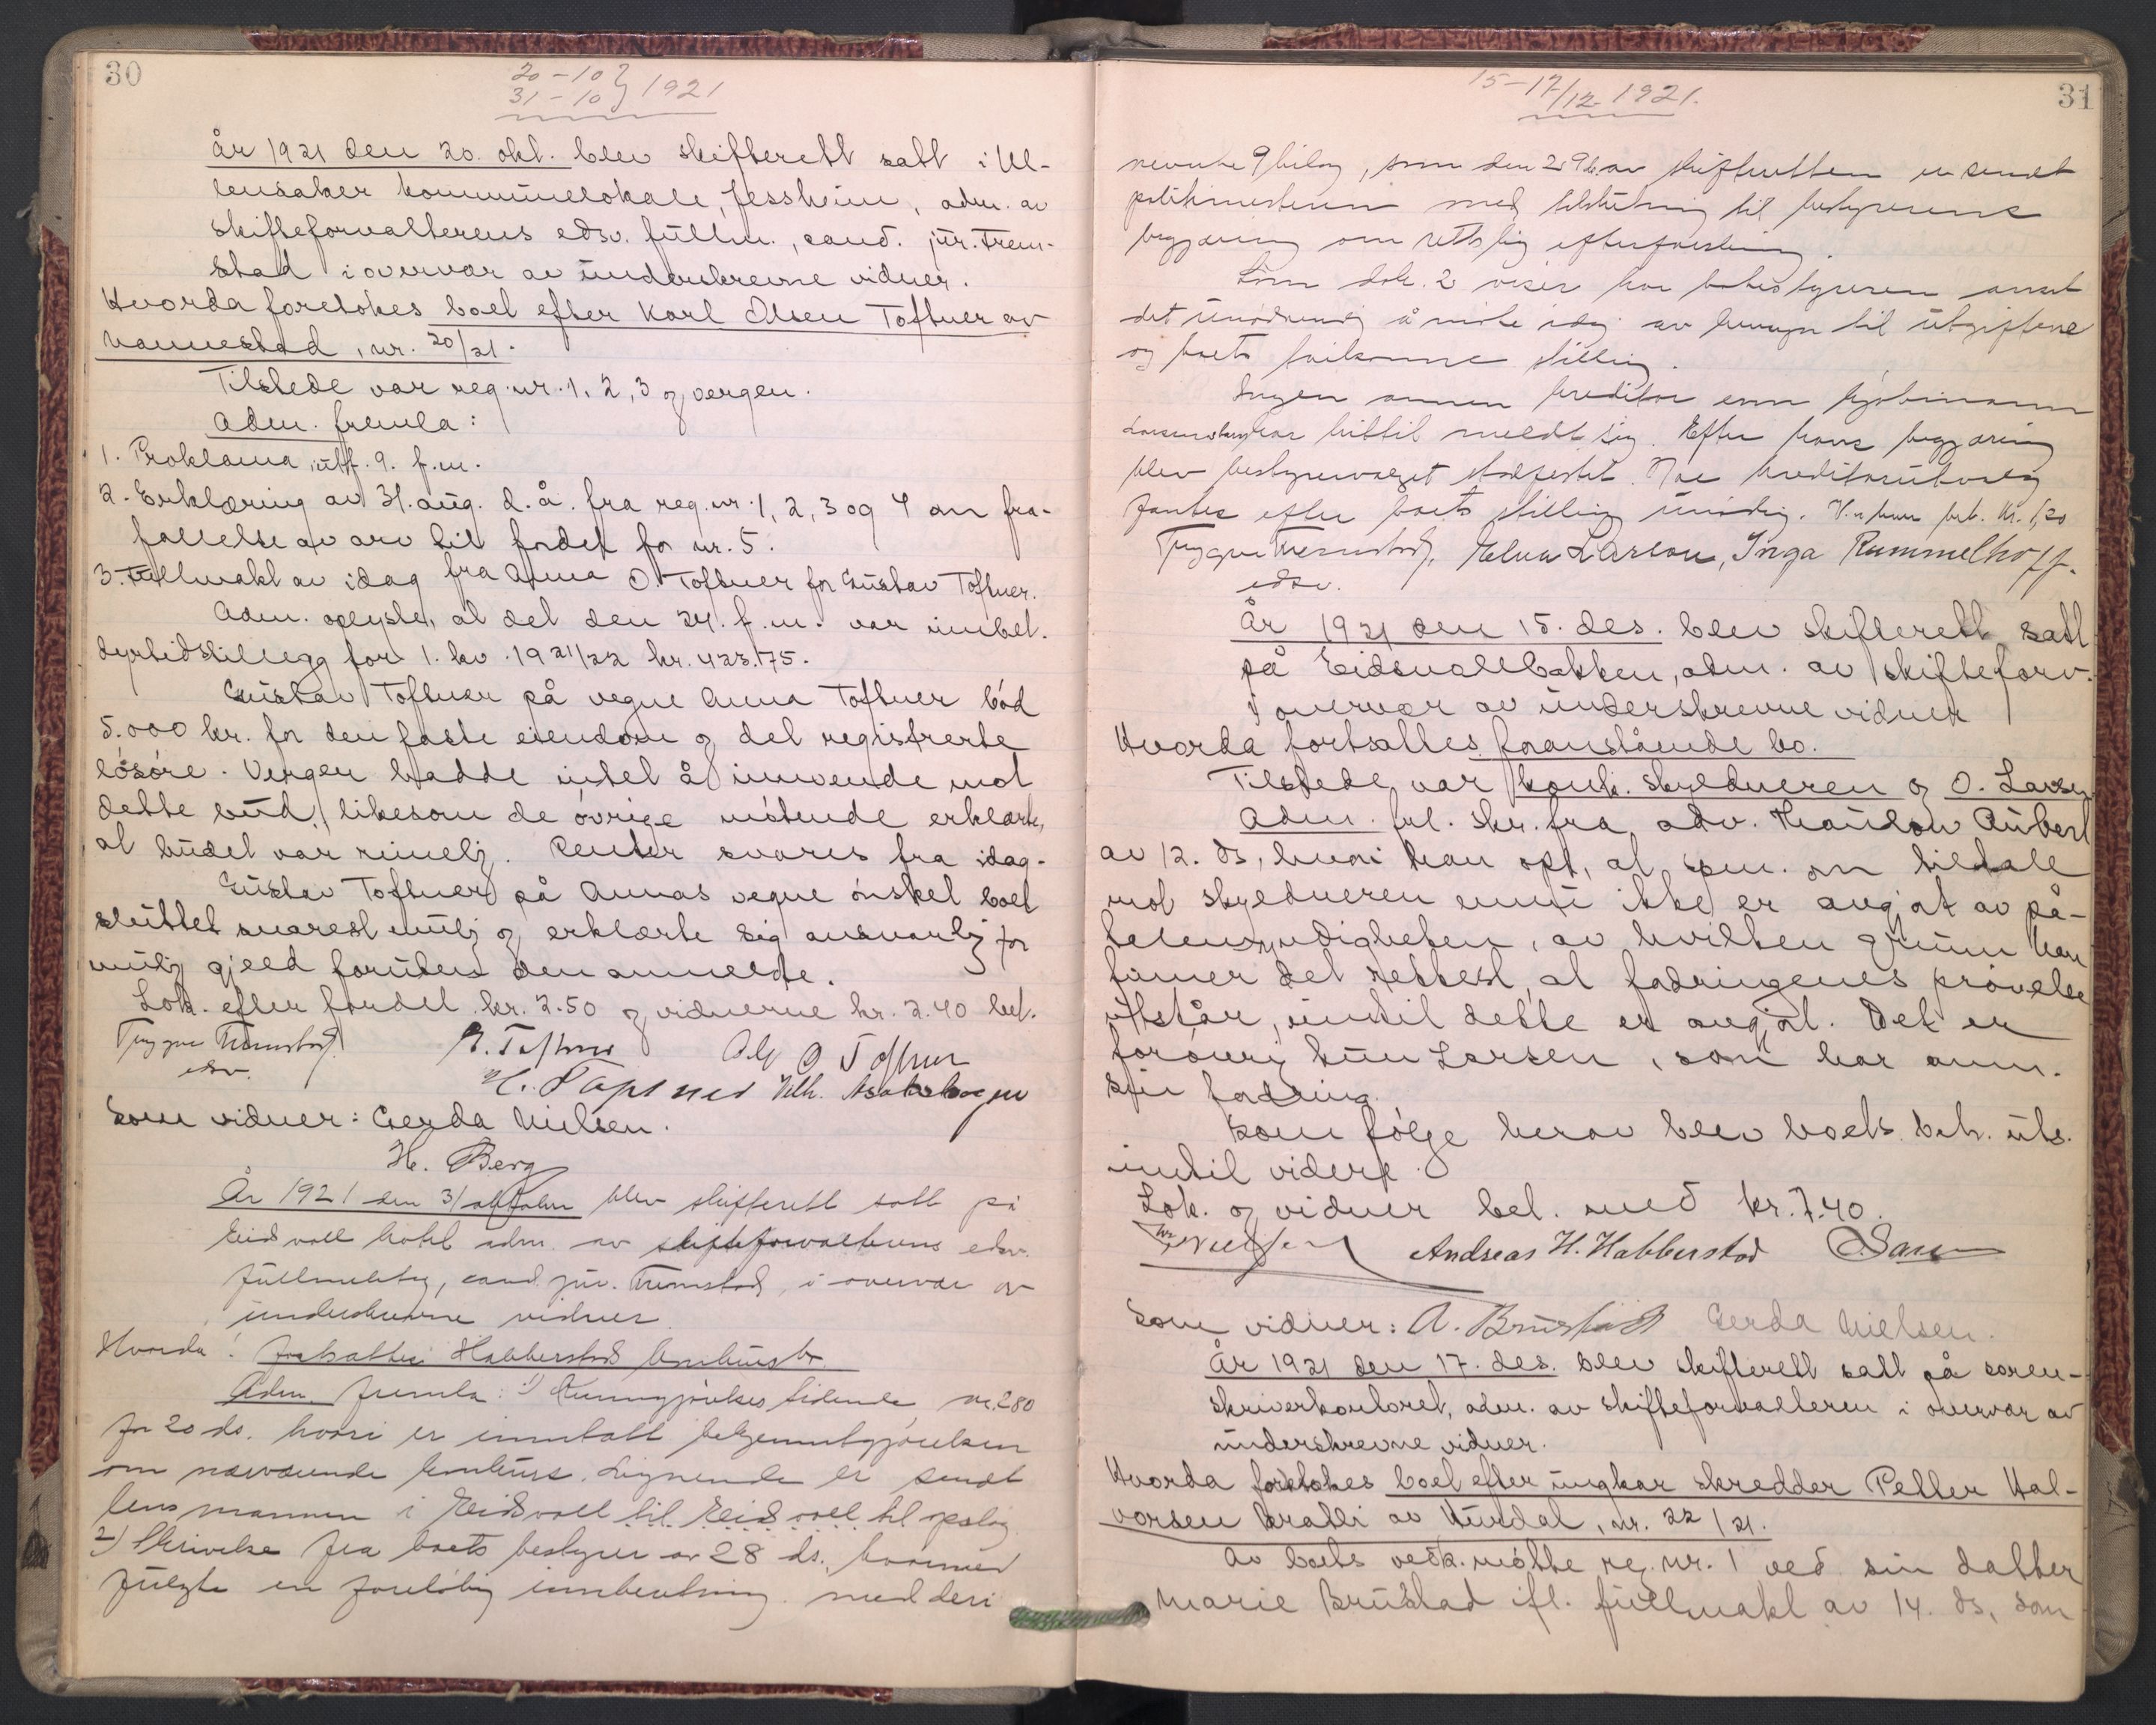 30
20-10 } 1921
31-10
År 1921 den 20. okt. blev skifterett satt i Ul-
lensaker kommunelokale, Jessheim, adm. av
skifteforvalterens edsv. fullm., cand. jur. Trem-
stad i overvær av underskrevne vidner.
Hvorda foretokes boet efter Karl Olsen Toftner av
Nannestad, nr. 20/21.
Tilstede var reg. nr. 1, 2, 3 og vergen.
Adm. fremla:
1. Proklama utst. 9. f.m.
2. Erklæring av 31. aug. d.å. fra reg. nr. 1, 2, 3 og 4 om fra-
fallelse av arv til fordel for nr. 5.
3. Fullmakt av idag fra Anna O. Toftner for Gustav Toftner.
Adm. oplyste, at det den 24. f.m. var innbet.
dyrtidstillegg for 1. kv. 1921/22 kr. 423.75.
Gustav Toftner på vegne Anna Toftner bød
5.000 kr. for den faste eiendom og det registrerte
løsøre. Vergen hadde intet å innvende mot
dette bud, likesom de øvrige møtende erklærte,
at budet var rimelig. Renter svares fra idag.
Gustav Toftner på Annas vegne ønsket boet
sluttet snarest mulig og erklærte sig ansvarlig for
mulig gjeld foruten den anmeldte.
Lok. efter fordel kr. 2.50 og vidnerne kr. 2.40 bet.
Trygve Tremstad G. Toftner Alf O Toftner
edsv.
H. Toftner Vilh. Asakskogen
Som vidner: Gerda Nielsen.
H. Berg
År 1921 den 31 oktober blev skifterett satt på
Eidsvoll hotel adm. av skifteforvalterens edsv.
fullmektig, cand. jur. Tremstad, i overvær av
underskrevne vidner
Hvorda: fortsattes Habberstad konkursbo.
Adm. fremla: 1) Kunngjørelsestidende nr. 280
for 20 ds. hvori er inntatt bekjenntgjørelsen
om nærværende konkurs. Lignende er sendt
lensmannen i Eidsvoll til Eidsvoll til opslag
2) Skrivelse fra boets bestyrer av 28 ds., hvormed
fulgte en foreløbig innberetning med deri
15-17/12 1921.
31
nevnte 9 bilag, som den 29 ds. av skifteretten er sendt
politimesteren med tilslutning til bestyrerens
begjæring om rettslig efterforskning.
Som dok. 2 viser har bobestyreren ansett
det unødvendig å møte idag av hensyn til utgiftene
og boets tvilsomme stilling.
Ingen annen kreditor enn kjøbmann
Larsen har hittil meldt sig. Efter hans begjæring
blev bestyrervalget stadfestet. Noe kreditorutvalg
fantes efter boets stilling unødig. V. bet. kr. 1,20
Trygve Tremstad, Elna Larson, Inga Rummelhoff.
edsv.
År 1921 den 15. des. blev skifterett satt
på Eidsvollbakken, adm. av skifteforv.
i overvær av underskrevne vidner
Hvorda fortsattes foranstående bo.
Tilstede var konk. skyldneren og O. Larsen
Adm. frl. skr. fra adv. Thaulow Aubert
av 12. ds, hvori han opl., at spm. om tiltale
mot skyldneren ennu ikke er avgjort av på-
talemyndigheten, av hvilken grunn han
finner det rettest, at fordringenes prøvelse
utstår, inntil dette er avgjort. Det er
forøvrig kun Larsen, som har anm.
sin fordring.
Som følge herav blev boets beh. uts.
inntil videre.
Lok. og vidner bet. med kr. 7.40.
Andreas H. Habberstad
Som vidner: A. Brustad Gerda Nielsen.
År 1921 den 17. des. blev skifterett satt på soren-
skriverkontoret, adm. av skifteforvalteren i overvær av
underskrevne vidner.
Hvorda foretokes boet efter ungkar skredder Petter Hal-
vorsen Kratli av Hurdal, nr. 22/21.
Av boets vedk. møtte reg. nr. 1 ved sin datter
Marie Brustad ifl. fullmakt av 14. ds, som